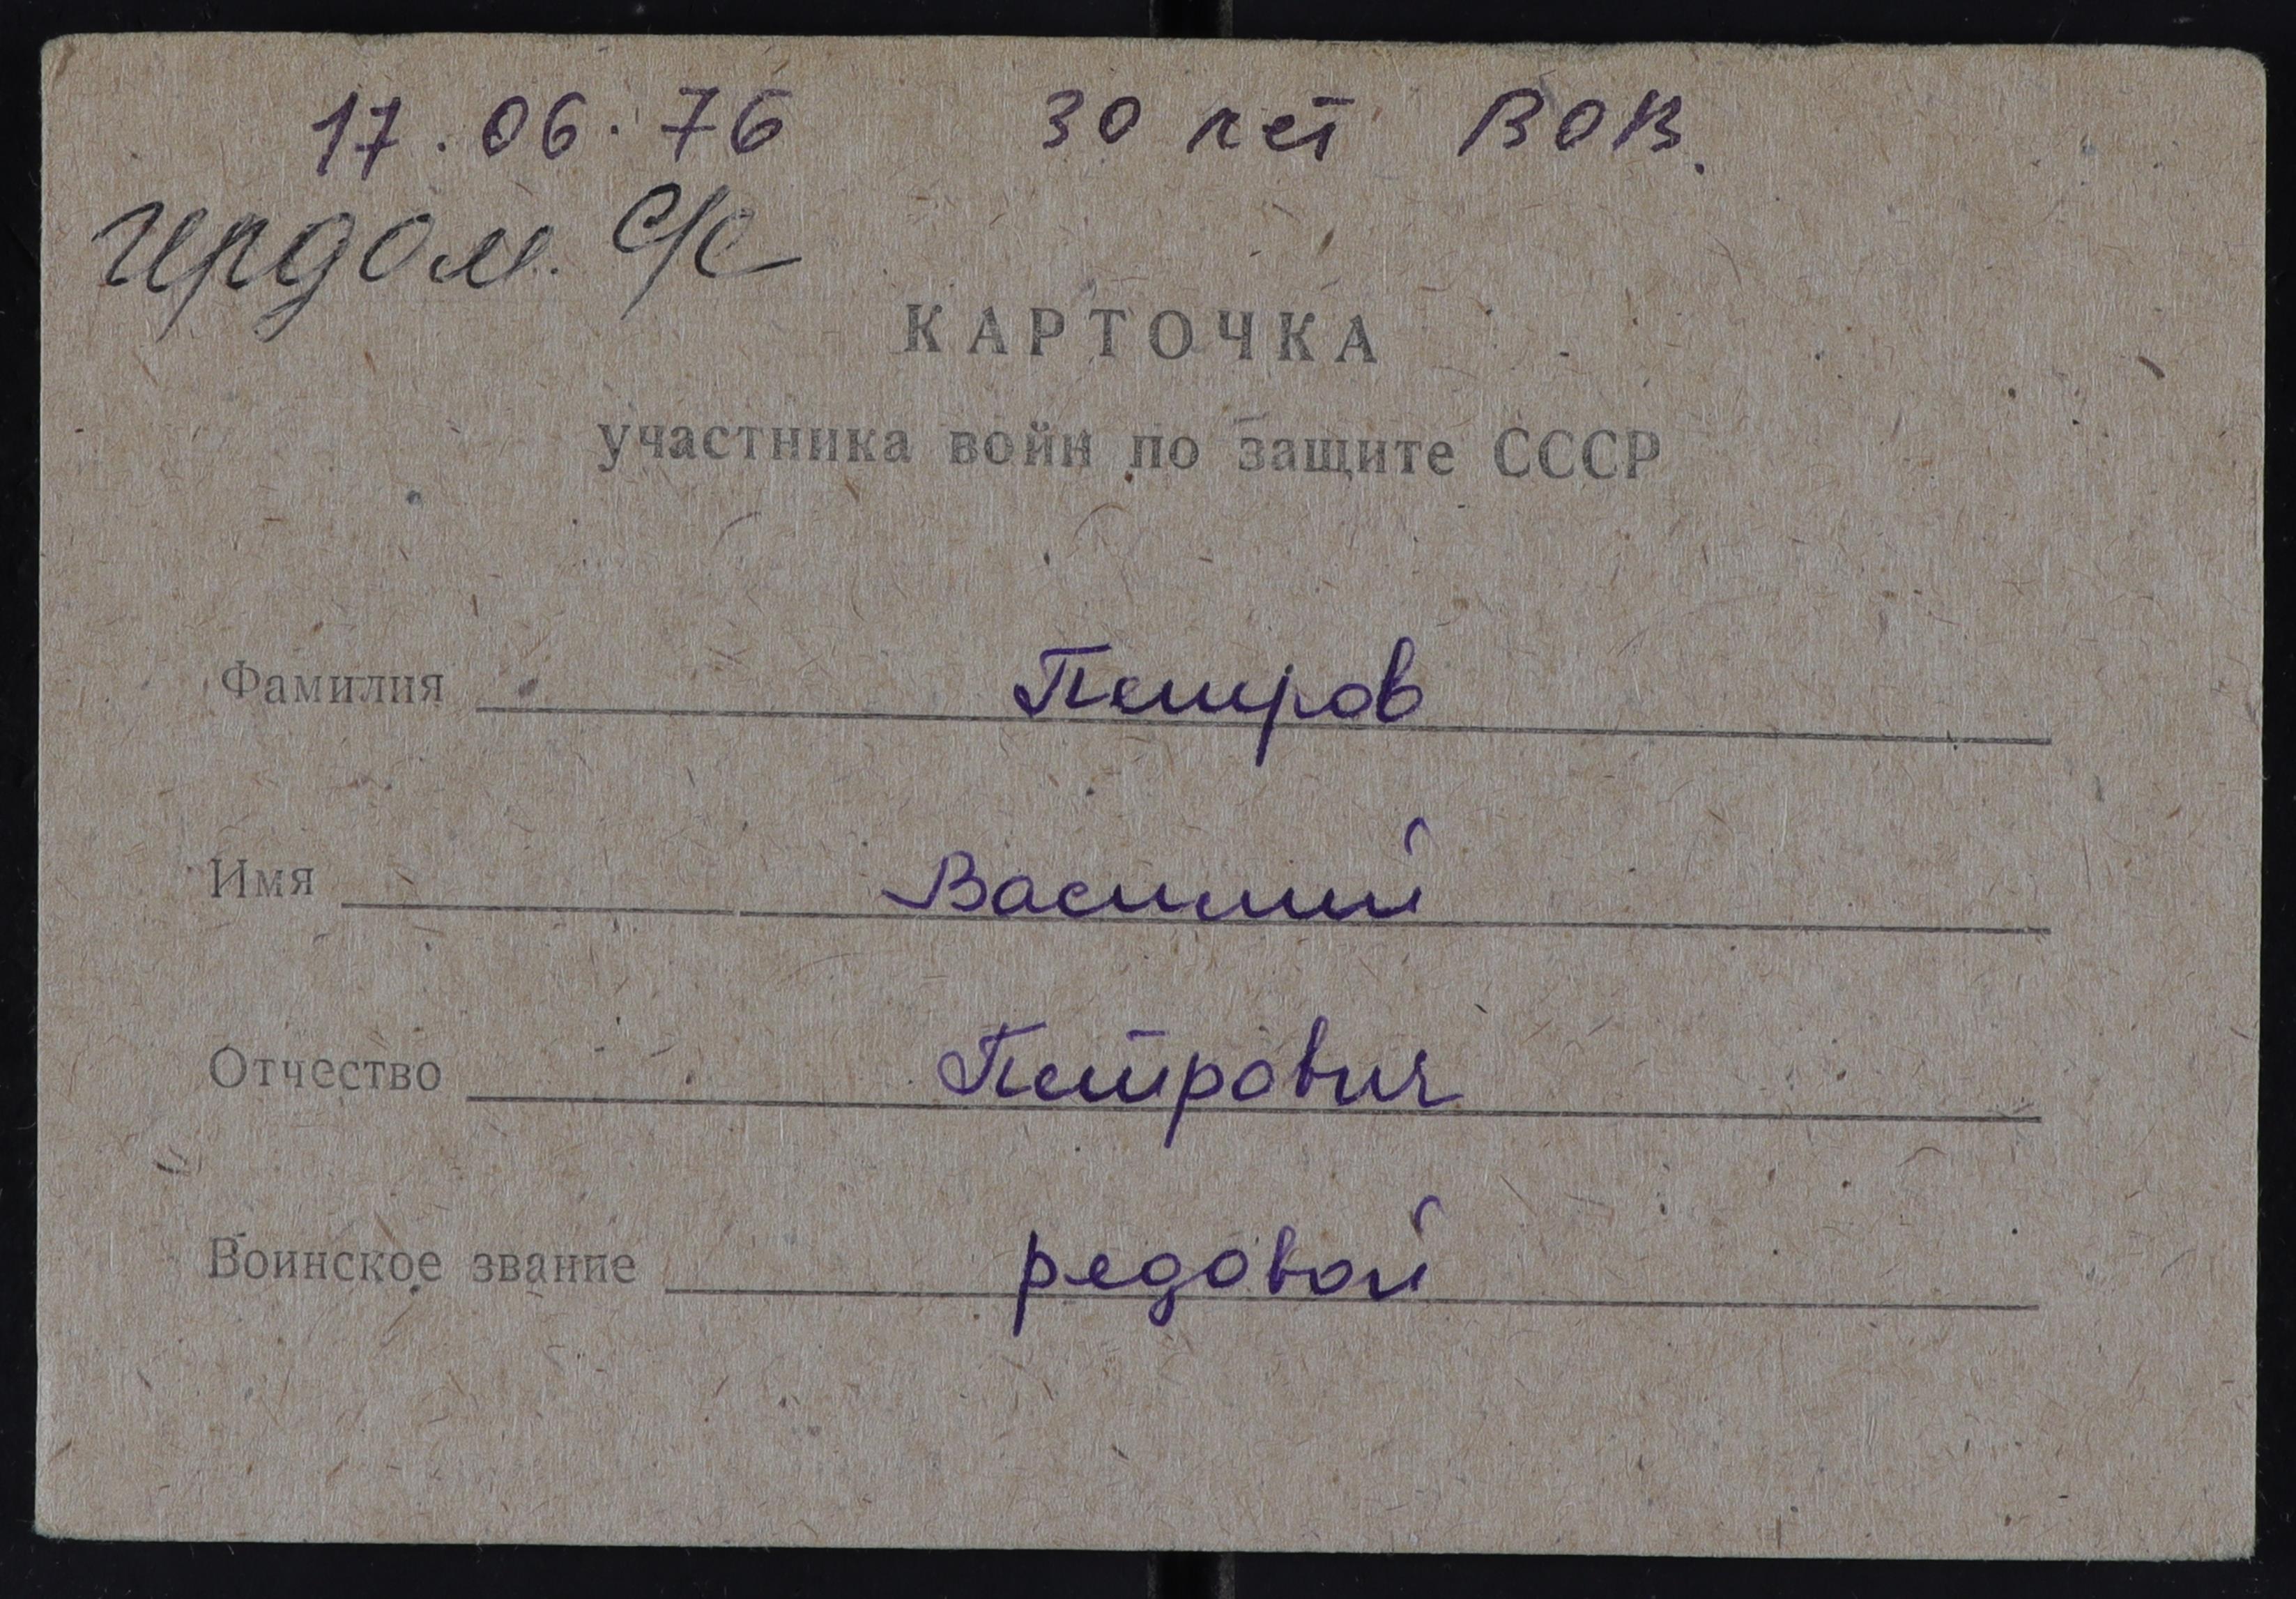 17.06.76 30 лет ВОВ.
Ирдом. с/с
КАРТОЧКА
участника войн по защите СССР
Фамилия Петров
Имя Василий
Отчество Петрович
Воинское звание редовой